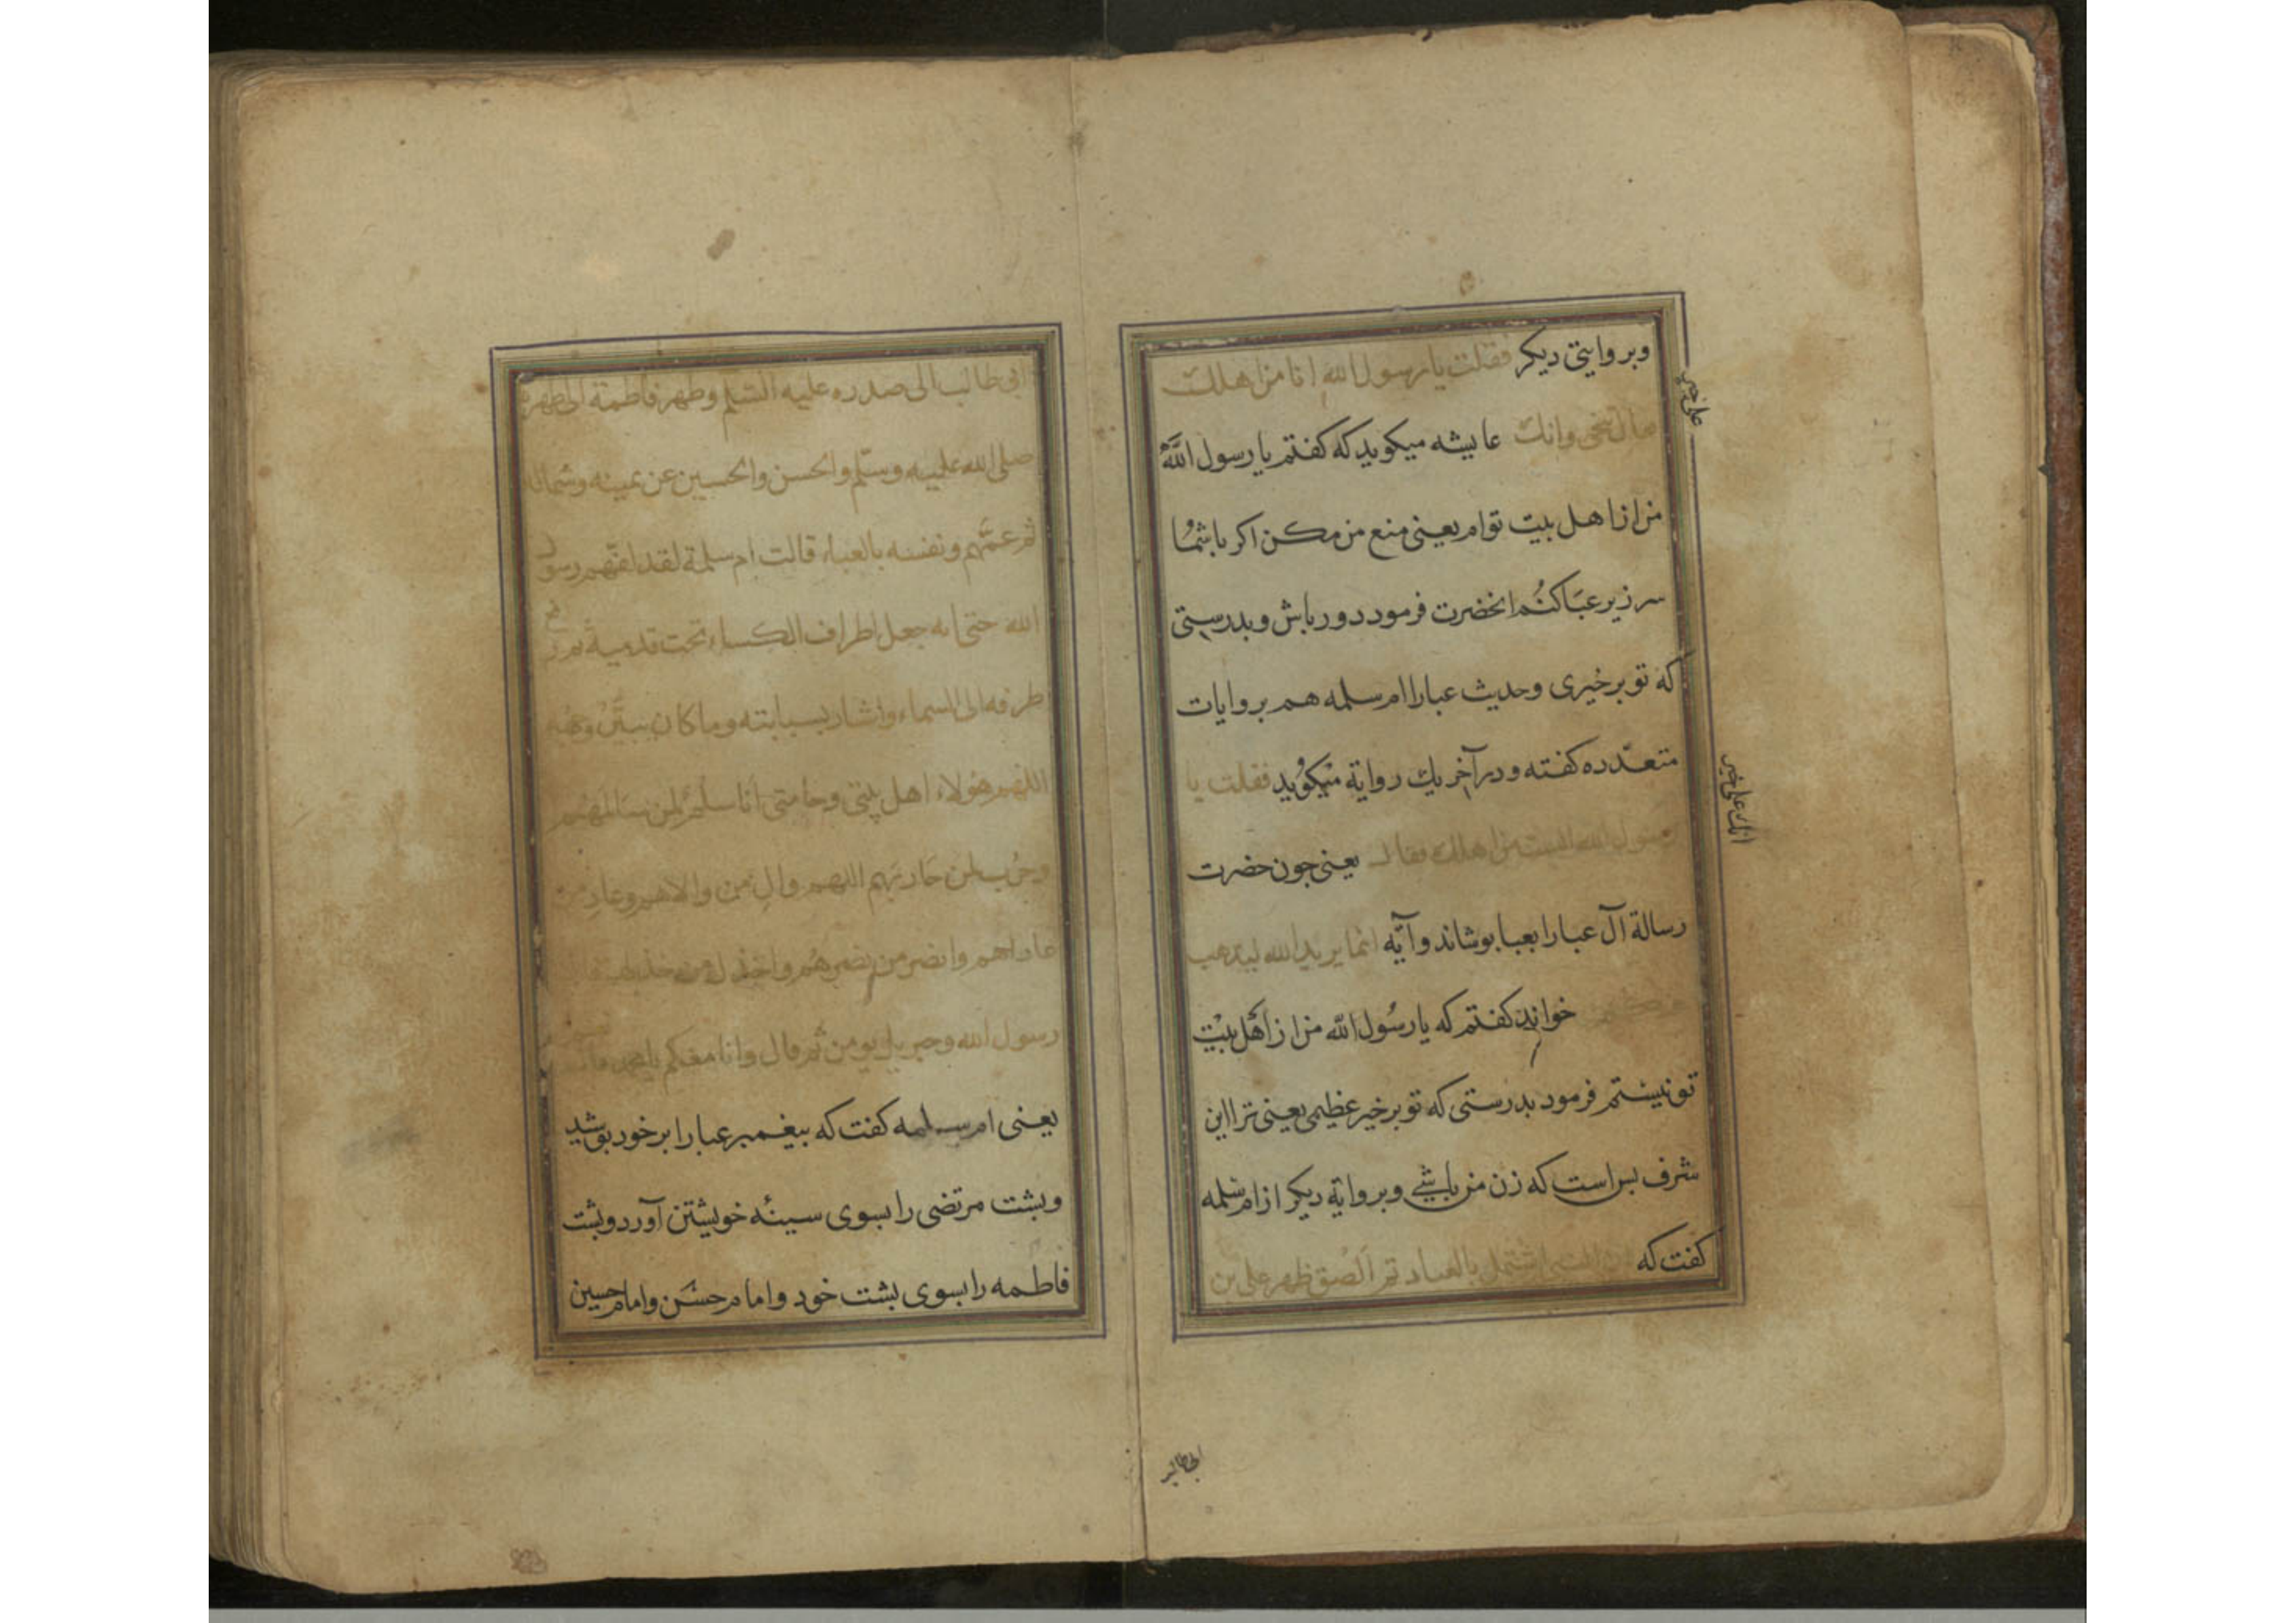 وبروایتی دیکر فقلت یا رسول الله انا من اهلك
قال تنحی وانك عایشه میکوید که کفتم یا رسول اللّه
من از اهل بیت توام یعنی منع من مکن اکر با شما
سر زیر عبا کنُم انحضرت فرمود دور باش وبدرستی
که تو بر خیری وحدیث عبارا ام سلمه هم بروایات
متعدّده کفته ودر آخر یك روایة میکوید فقلت یا
رسول الله الست من اهلك فقال یعنی جون حضرت
رسالة آل عبارا بعبا بوشاند وآیه انما یرید الله لیذهب
خواند کفتم که یا رسُول اللّه من از اهل بیت
تو نیستم فرمود بدرستی که تو بر خیر عظیمی یعنی ترا این
شرف بس است که زن من باشی وبروایة دیکر از ام سلمه
کفت که اشتمل بالعباء ثم الصق ظهر علی بن
علی خیر
انك علی خیر
ابی طالب الی صدره علیه السّلم وظهر فاطمة الی ظهره
صلی الله علیه وسلّم والحسن والحسین عن یمینه وشماله
ثم عمّهم ونفسه بالعباء قالت ام سلمة لقد لفّهم رسول
الله حتی انه جعل اطراف الکساء تحت قدمیه ثم رفع
طرفه الی السماء واشار بسبابته وما کان یبیّن وجهه
اللهم هؤلاء اهل بیتی وحامتی انا سلم لمن سالمهم
وحرب لمن حاربهم اللهم وال من والاهم وعاد من
عاداهم وانصر من نصرهم واخذل من خذلهم
رسول الله وجبریل یومن ثم قال وانا معکم یا محمد
یعنی ام سلمه کفت که بیغمبر عبارا بر خود بوشید
وبشت مرتضی را بسوی سینهٔ خویشتن آورد وبشت
فاطمه را بسوی بشت خود وامام حسَن وامام حسین